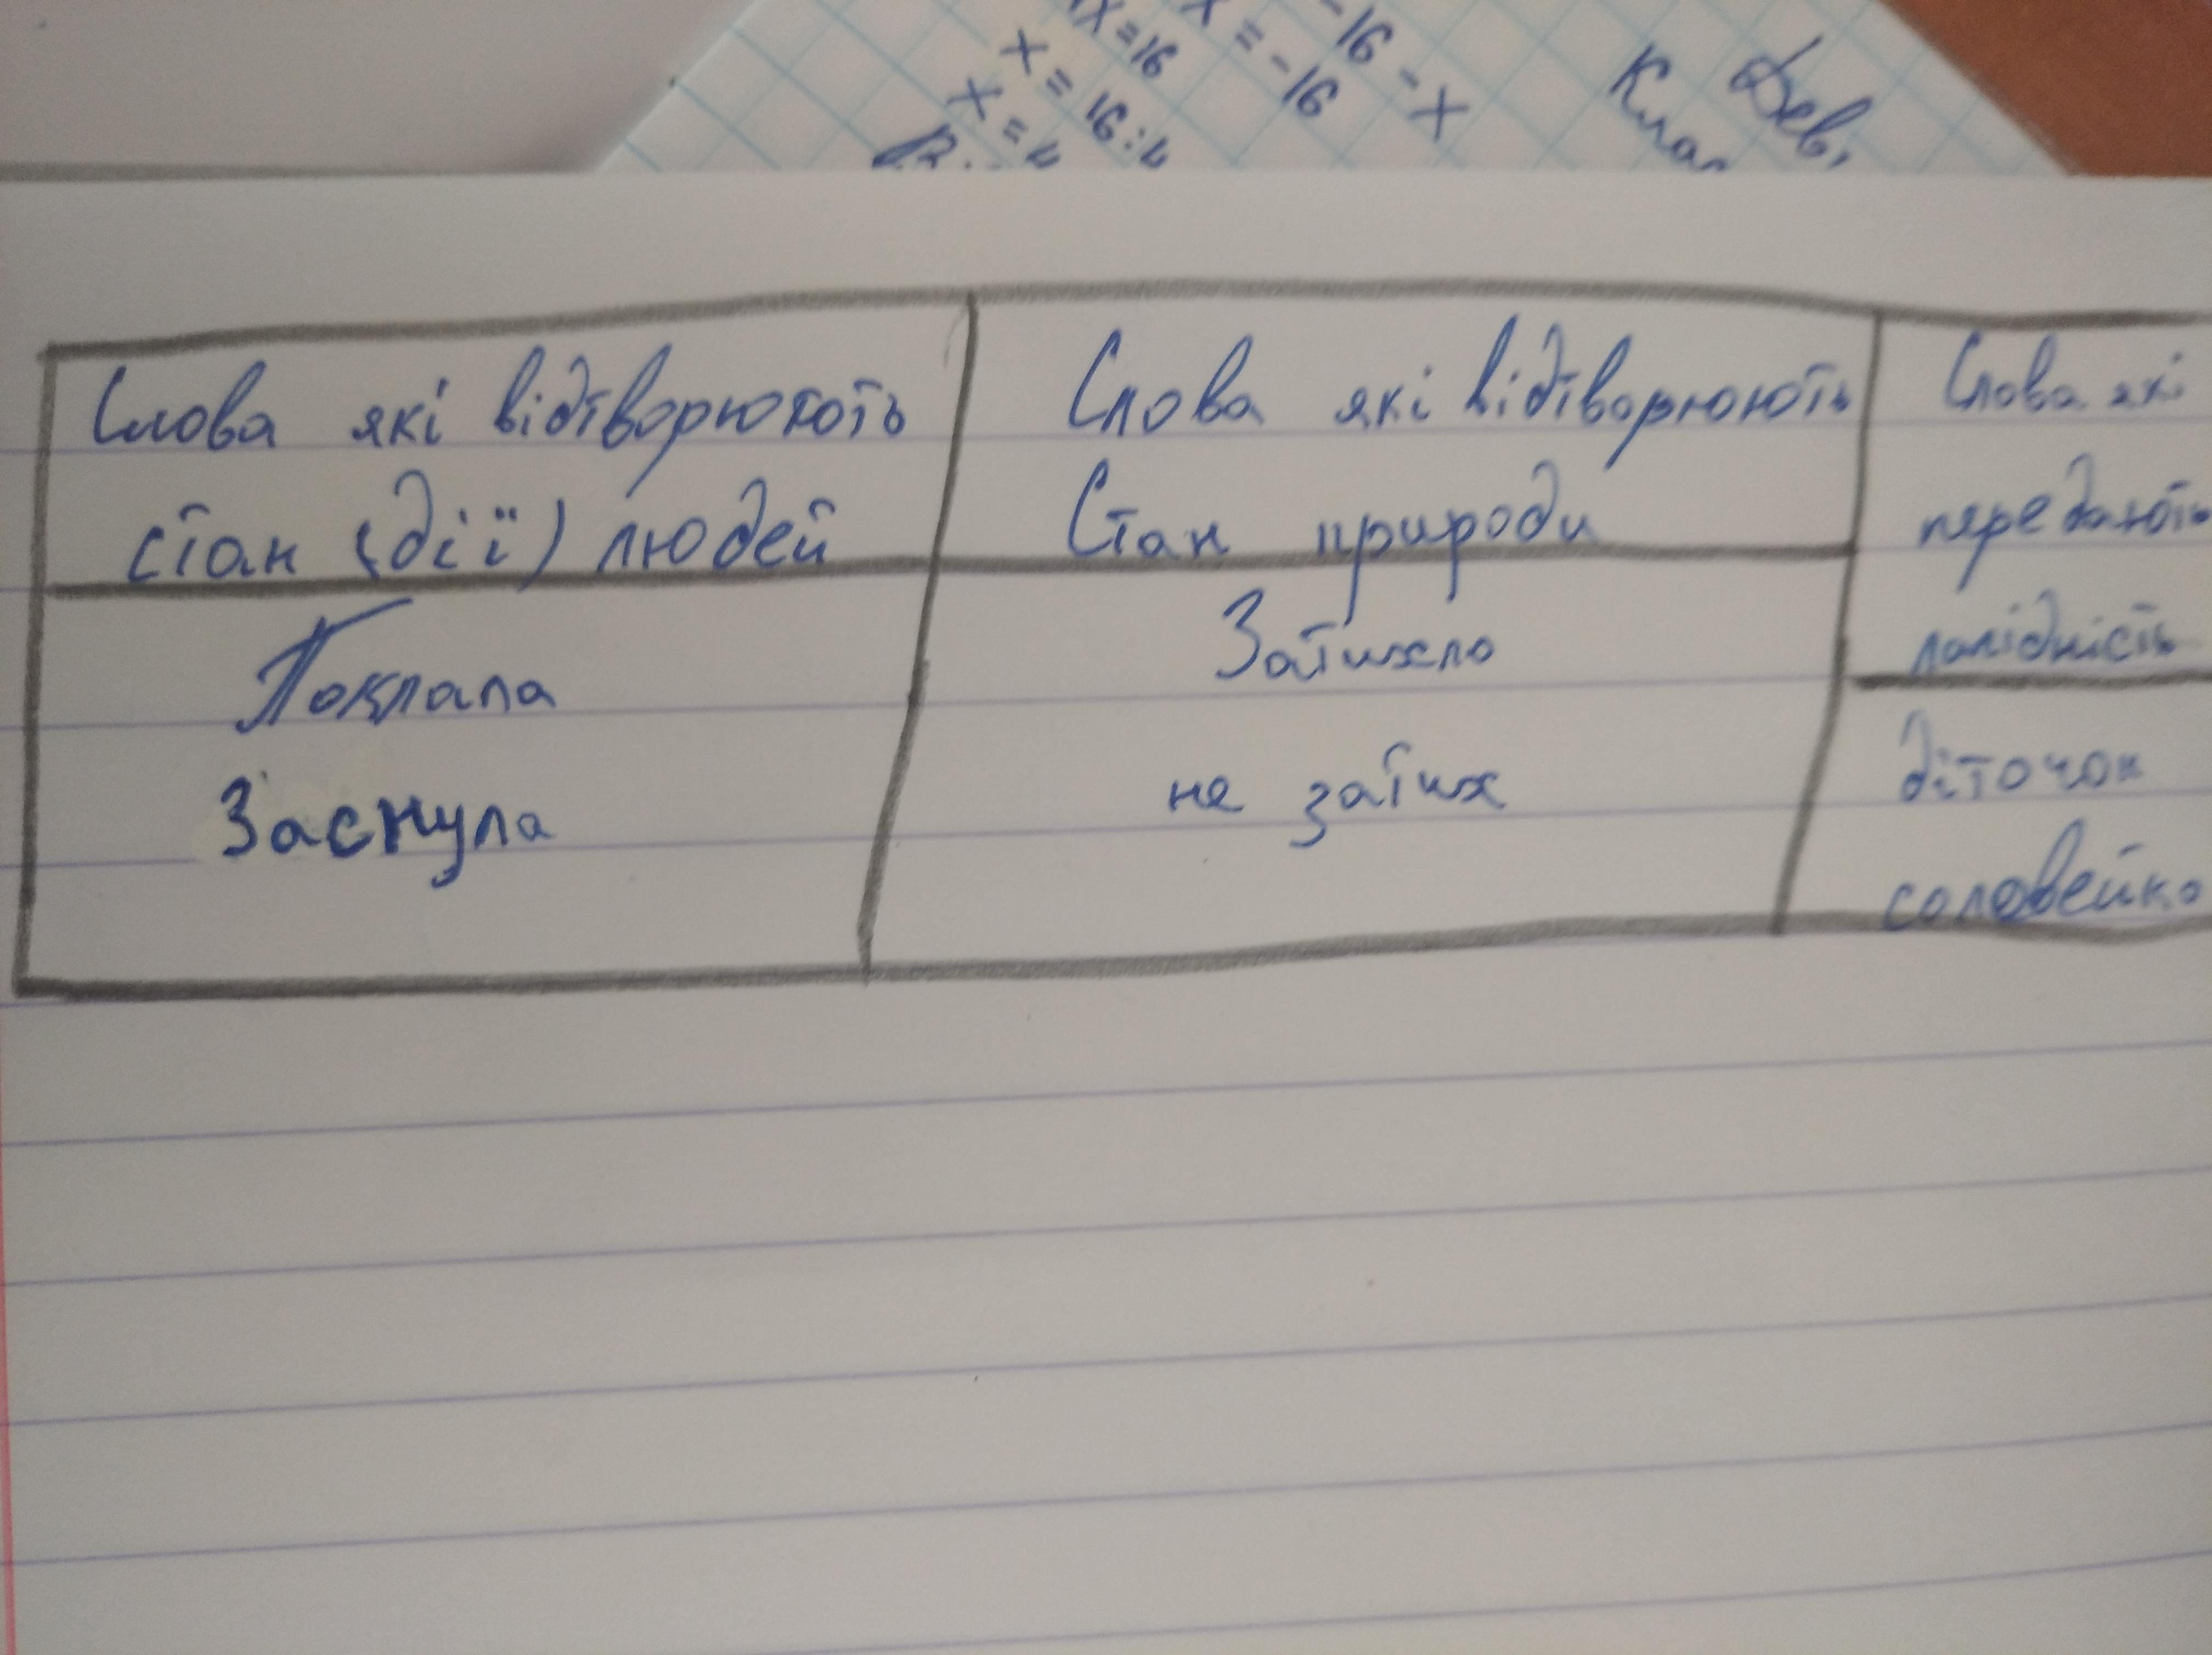 х=16
х = -16
-16 - х
х = 16:4
х = 4
Слова які відтворюють
стан (дії) людей
Поклала
Заснула
Слова які відтворюють
Стан природи
Затихло
не затих
Слова які
передають
лагідність
діточок
соловейко